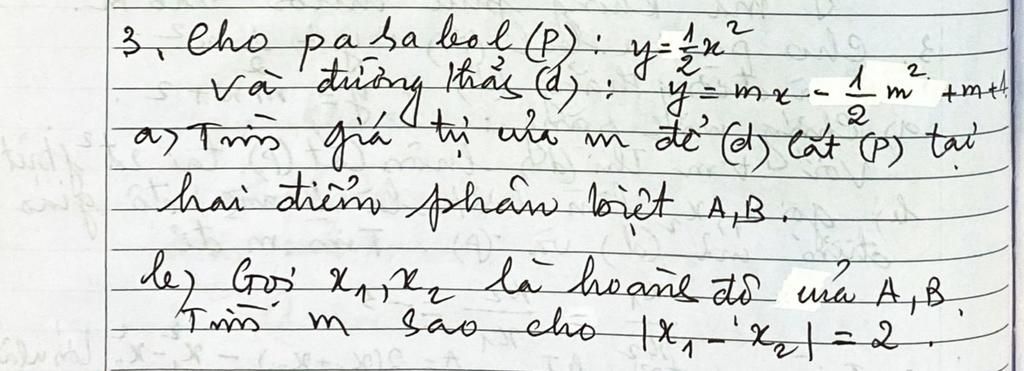 3, Cho parabol (P): y = 1/2 x²
và đường thẳng (d): y = mx - 1/2 m² + m + 1
a) Tìm giá trị của m để (d) cắt (P) tại
hai điểm phân biệt A, B.
b) Gọi x₁, x₂ là hoành độ của A, B.
Tìm m sao cho |x₁ - x₂| = 2.